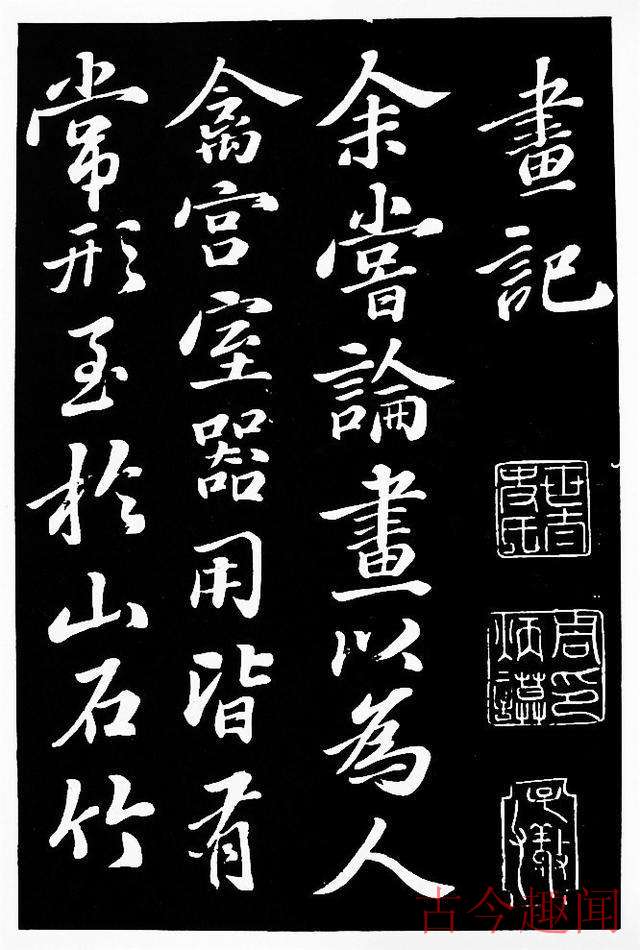 畫記
余嘗論畫以為人
禽宮室器用皆有
常形至於山石竹
古今趣闻